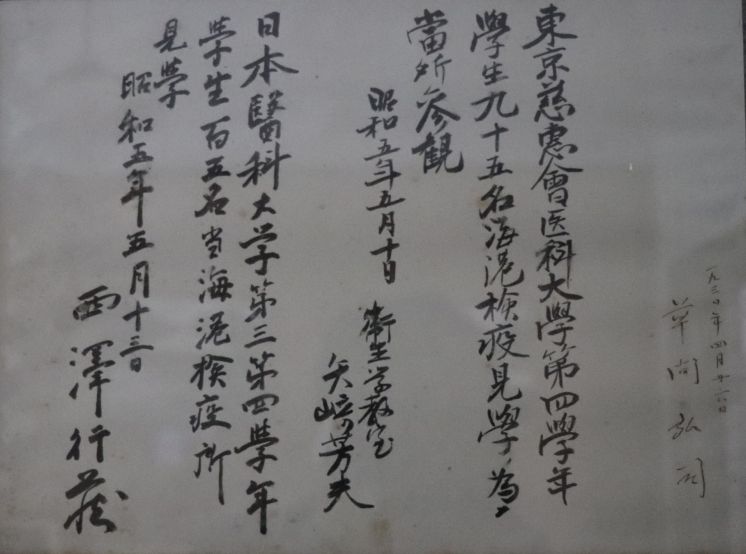 一九三〇年四月廿六日
草間弘司
東京慈惠會医科大學第四學年
學生九十五名海港検疫見學ノ為メ
當所參觀
昭和五年五月十日
衛生学教室
矢崎芳夫
日本醫科大学第三第四學年
學生百五名当海港検疫所
見學
昭和五年五月十三日
西澤行藏